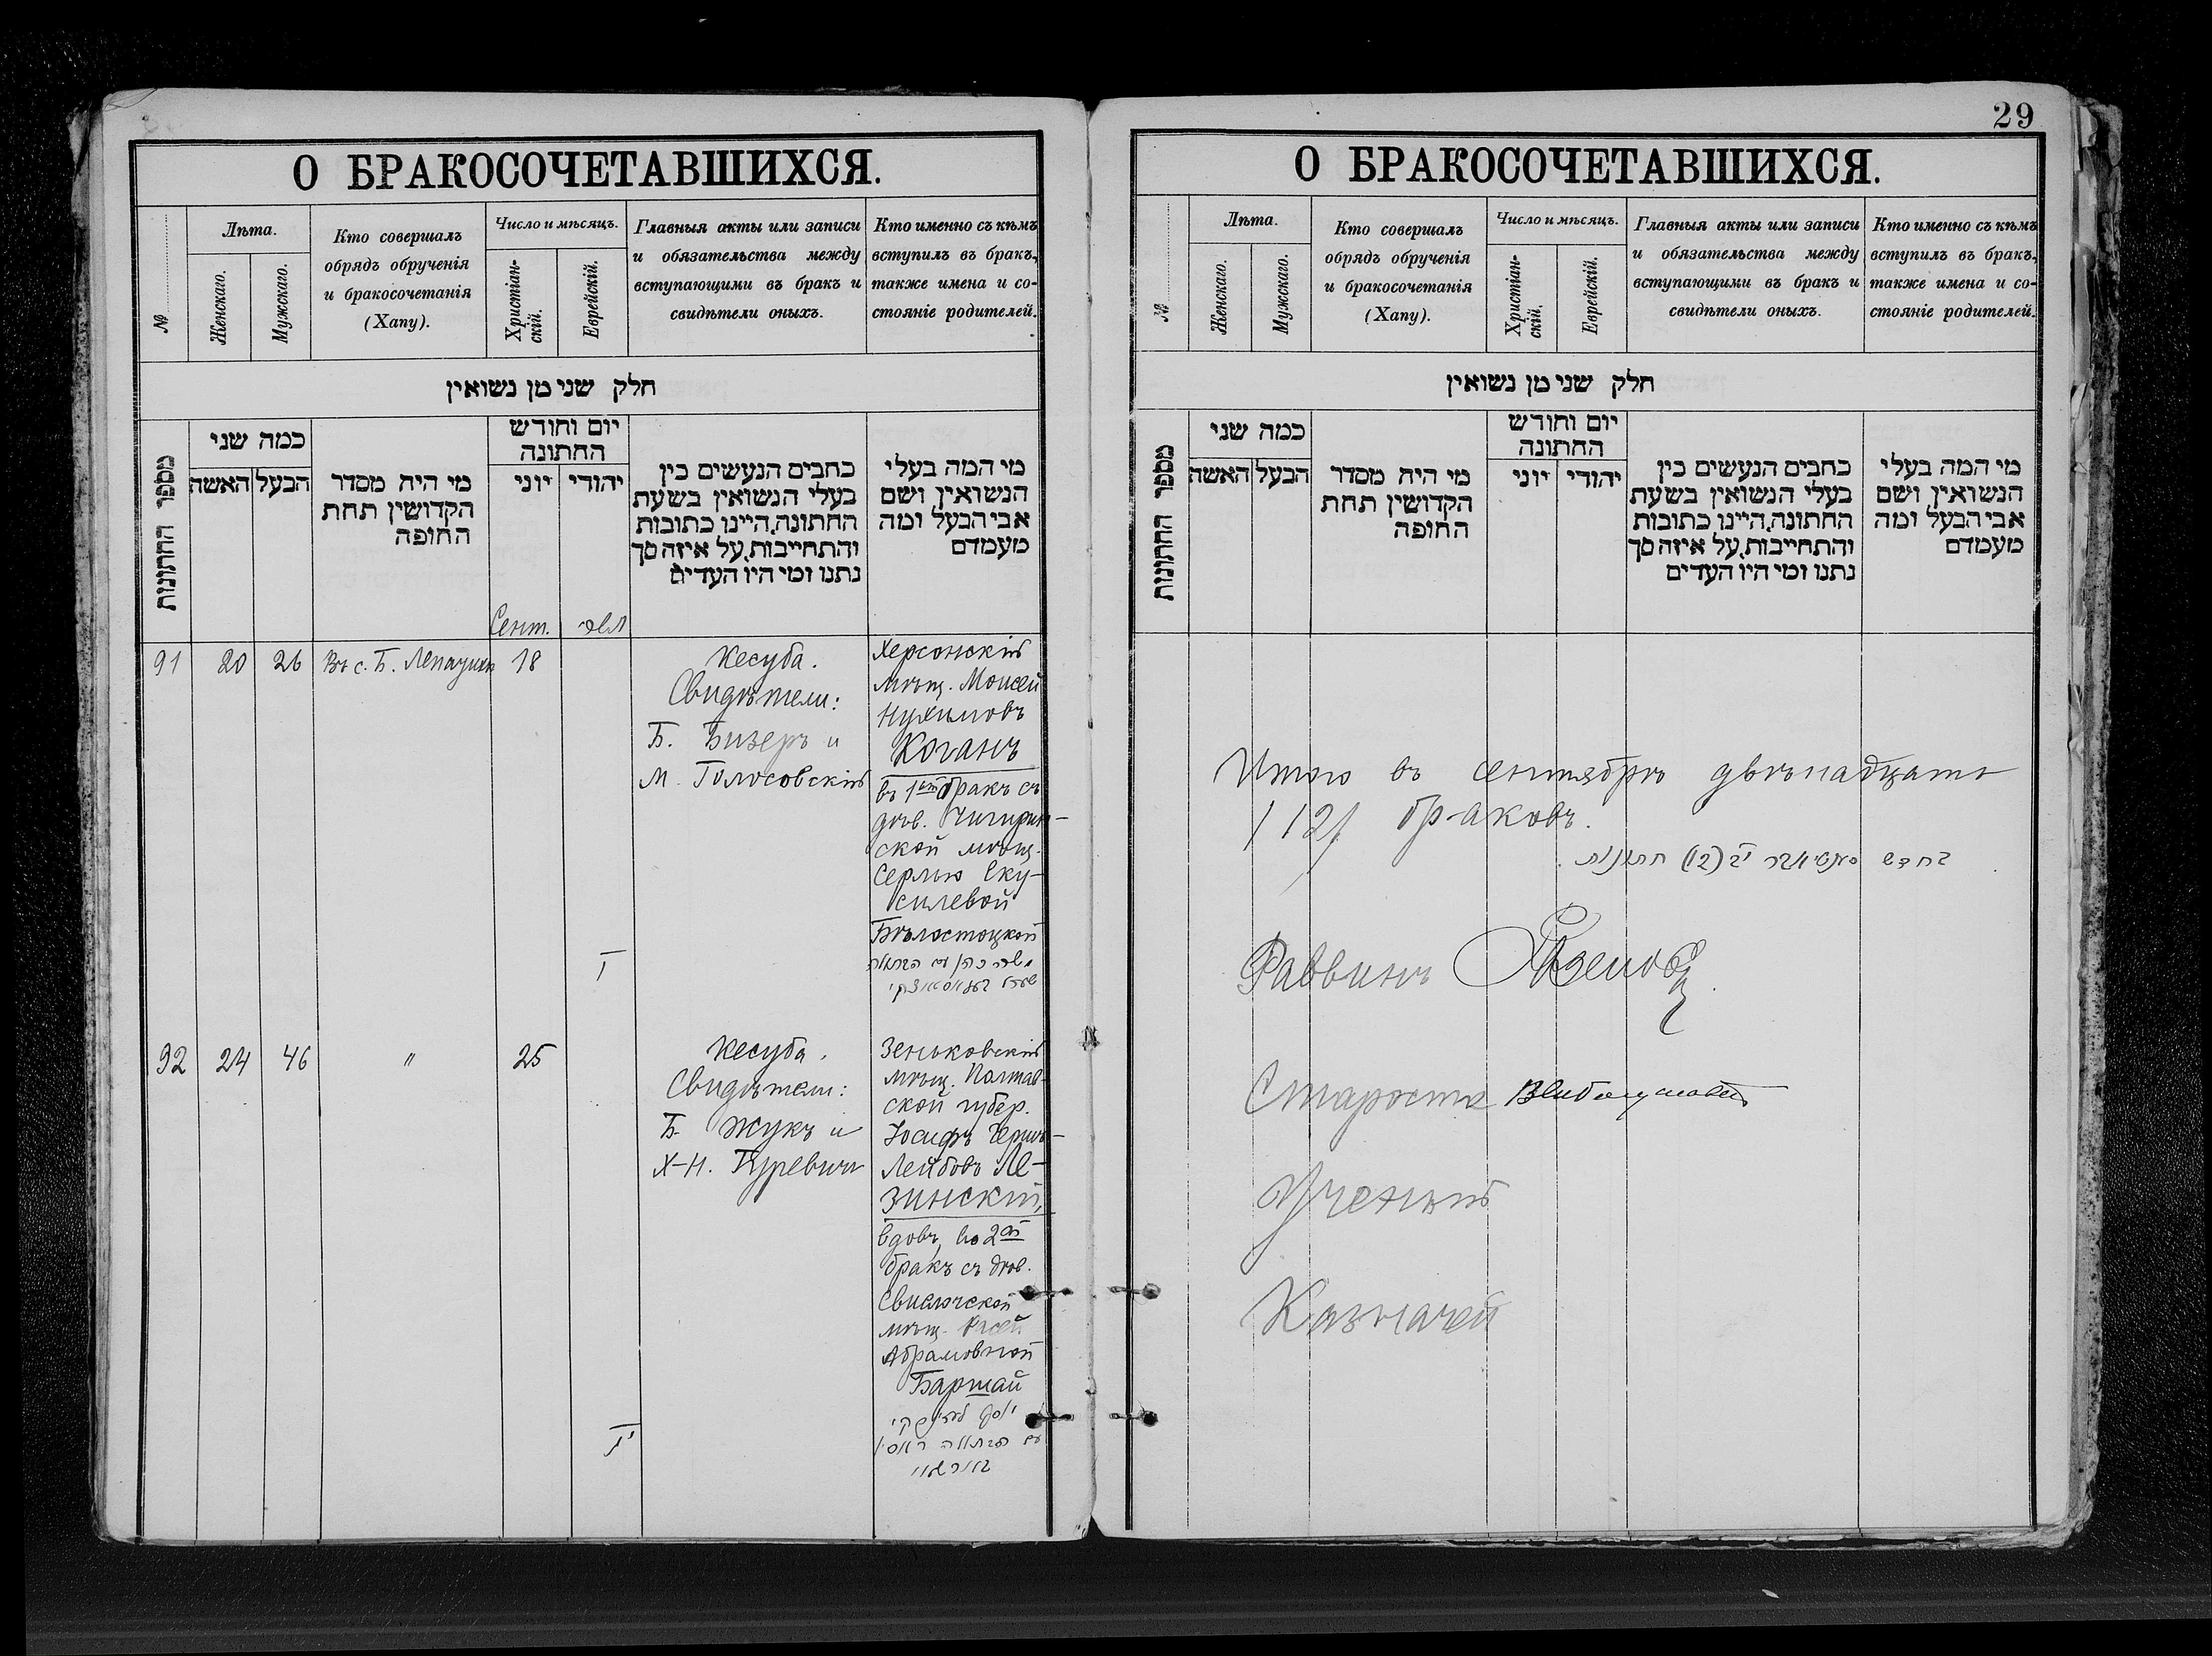 О БРАКОСОЧЕТАВШИХСЯ.
№
Лѣта.
Женскаго.
Мужскаго.
Кто совершалъ
обрядъ обрученія
и бракосочетанія
(Хапу).
Число и мѣсяцъ.
Христіан-
скій.
Еврейскій.
Главныя акты или записи
и обязательства между
вступающими въ бракъ и
свидѣтели оныхъ.
Кто именно съ кѣмъ
вступилъ въ бракъ,
также имена и со-
стояніе родителей.
חלק שני מן נשואין
מספר החתונות
כמה שני
הבעל האשה
מי היה מסדר
הקדושין תחת
החופה
יום וחודש
החתונה
יהודי יוני
כתבים הנעשים בין
בעלי הנשואין בשעת
החתונה, היינו כתובות
והתחייבות, על איזה סך
נתנו ומי היו העדים
מי המה בעלי
הנשואין ושם
אבי הבעל ומה
מעמדם
Сент.
91 20 26 Въ с. Б. Лепатихѣ 18
Кесуба.
Свидѣтели:
Б. Бизеръ и
М. Голосовскій
Херсонскій
мѣщ. Моисей
Нухимовъ
Коганъ
въ 1ый бракъ съ
дѣв. Чигирин-
ской мѣщ.
Серлею Еку-
силевой
Бѣлостоцкой
92 24 46 " 25
Кесуба.
Свидѣтели:
Б. Жукъ и
Х-Н. Гуревичъ
Зеньковскій
мѣщ. Полтав-
ской губер.
Іосифъ Гершъ-
Лейбовъ Ле-
зинскій,
вдовъ, во 2ой
бракъ съ дѣв.
Свислочской
мѣщ. Расей
Абрамовной
Баршай
29
О БРАКОСОЧЕТАВШИХСЯ.
№
Лѣта.
Женскаго.
Мужскаго.
Кто совершалъ
обрядъ обрученія
и бракосочетанія
(Хапу).
Число и мѣсяцъ.
Христіан-
скій.
Еврейскій.
Главныя акты или записи
и обязательства между
вступающими въ бракъ и
свидѣтели оныхъ.
Кто именно съ кѣмъ
вступилъ въ бракъ,
также имена и со-
стояніе родителей.
חלק שני מן נשואין
מספר החתונות
כמה שני
הבעל האשה
מי היה מסדר
הקדושין תחת
החופה
יום וחודש
החתונה
יהודי יוני
כתבים הנעשים בין
בעלי הנשואין בשעת
החתונה, היינו כתובות
והתחייבות, על איזה סך
נתנו ומי היו העדים
מי המה בעלי
הנשואין ושם
אבי הבעל ומה
מעמדם
Итого въ сентябрѣ двѣнадцать
/12/ браковъ.
בחדש סענטיאבר יב (12) חתונות
Раввинъ
Староста
Ученый
Казначей